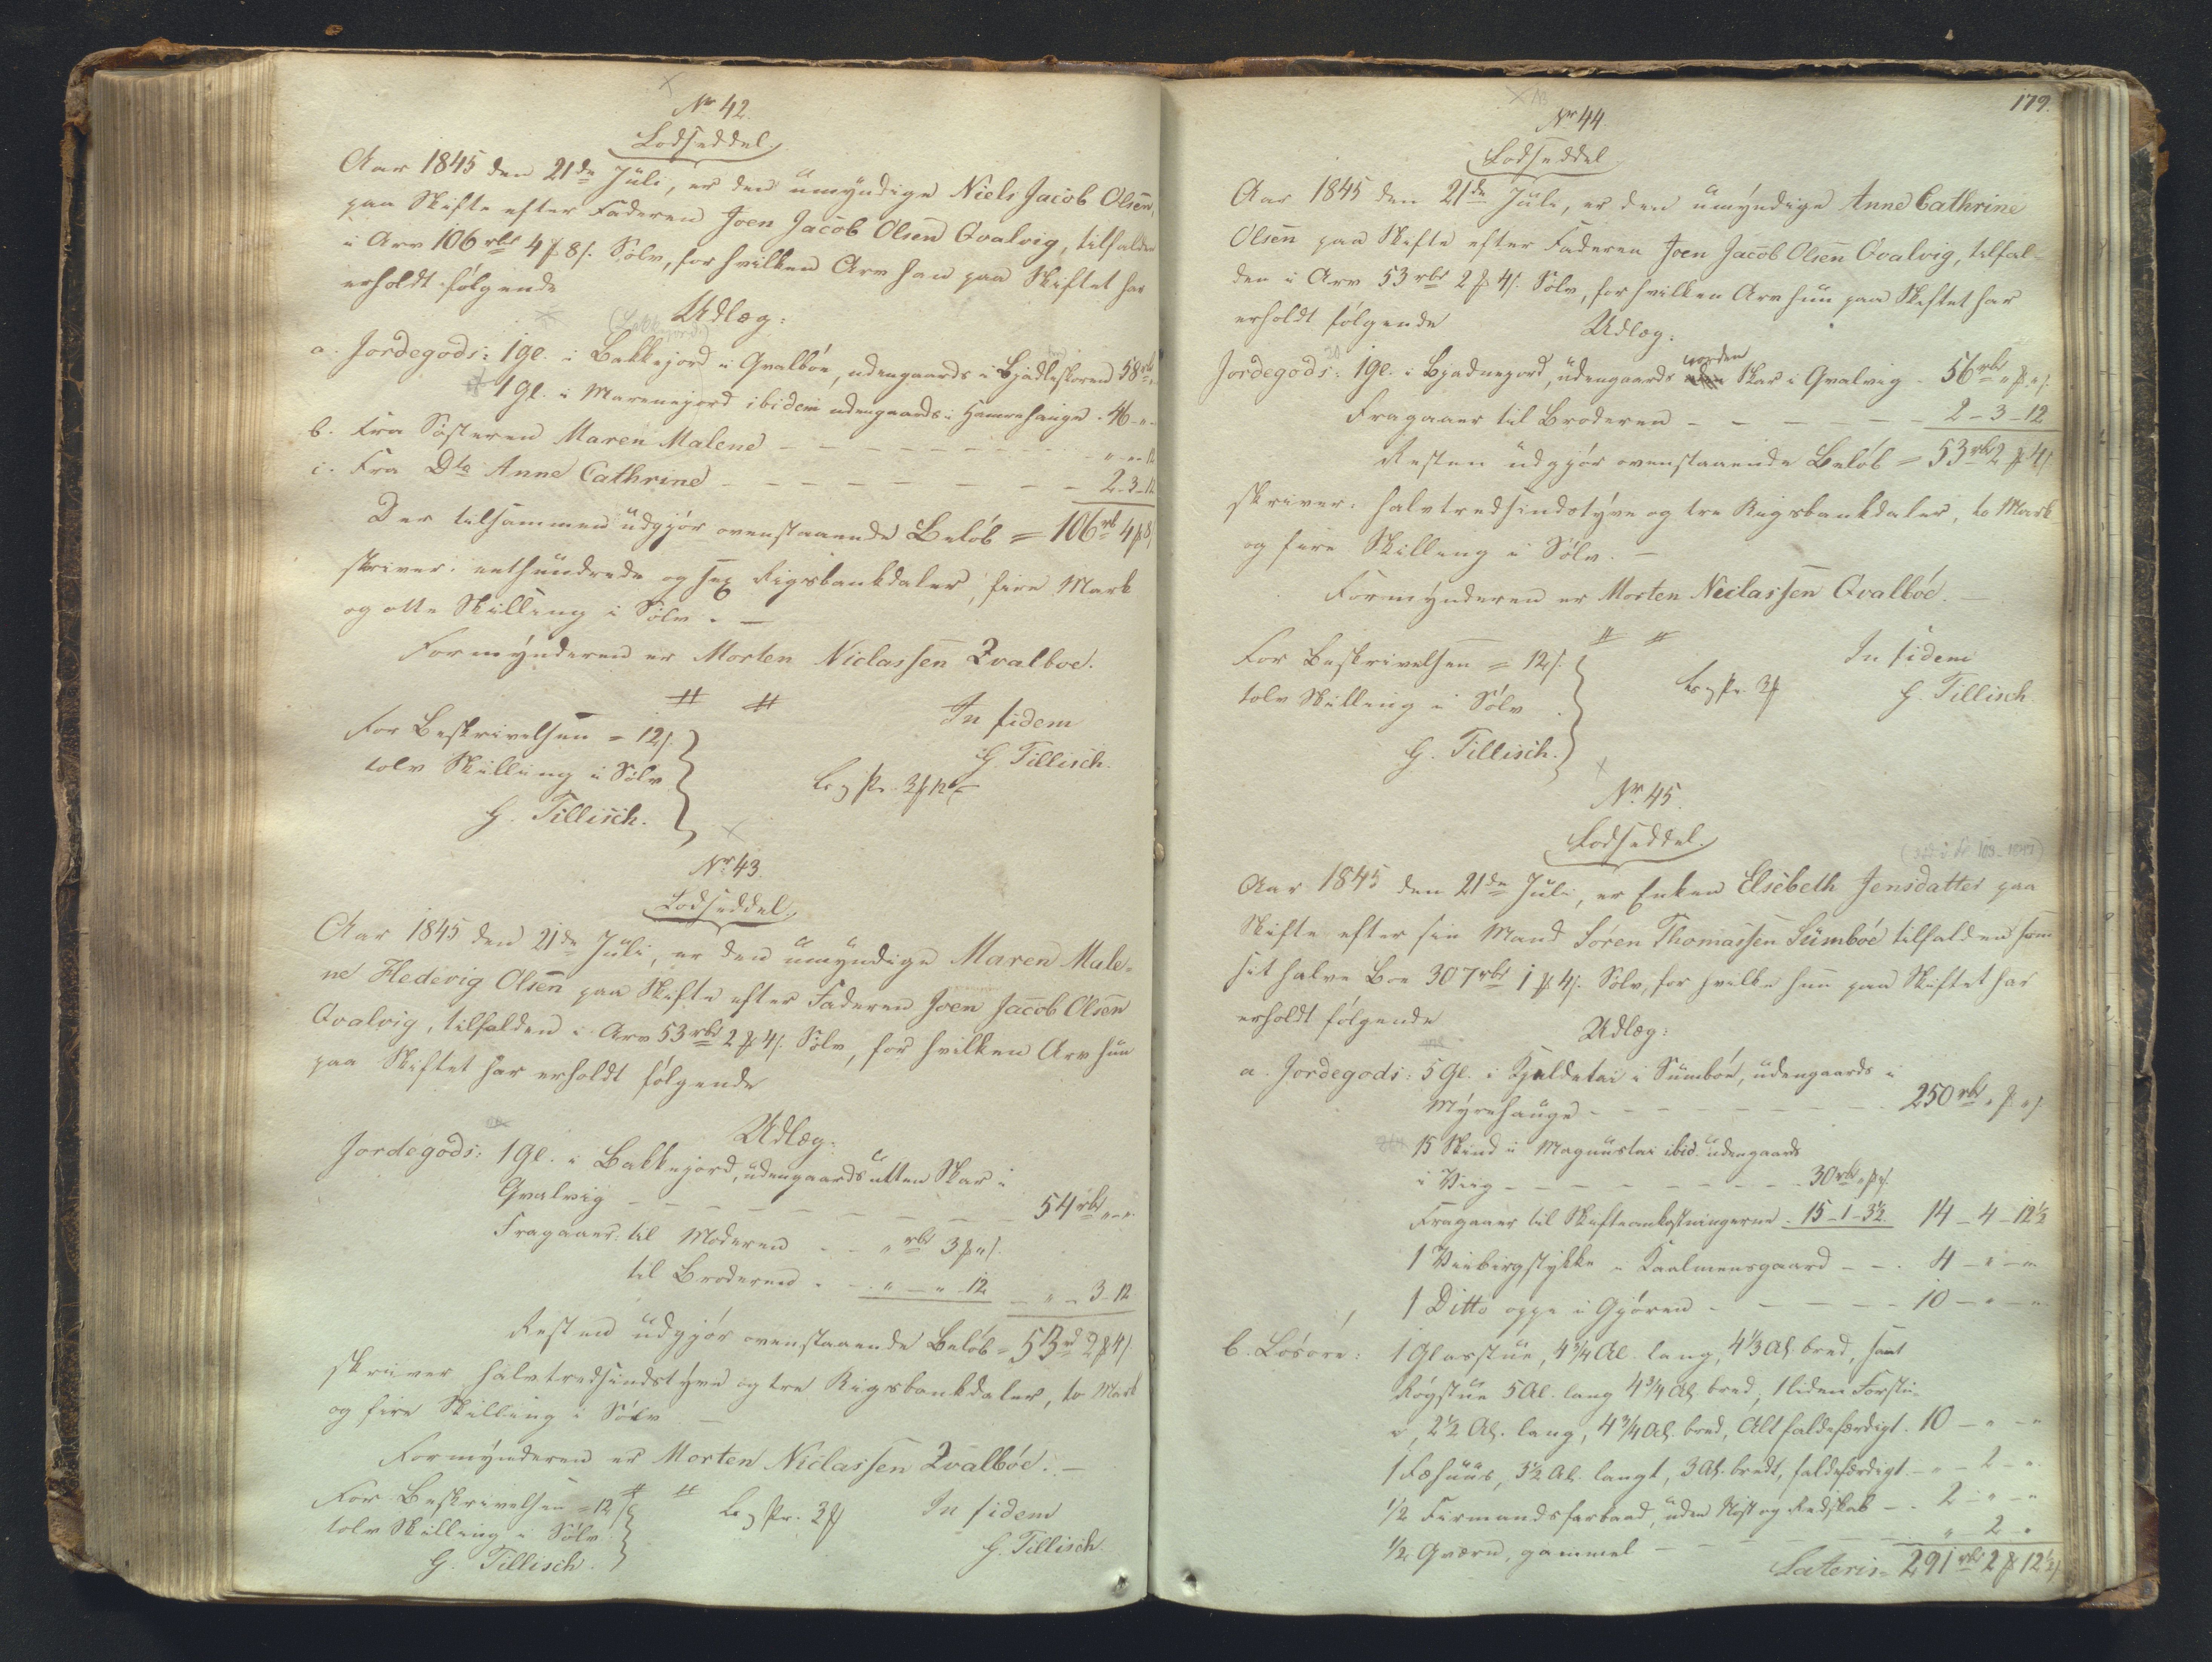 Nr 42.
Lodseddel.
Aar 1845 den 21de Juli, er den umyndige Niels Jacob Olsen,
paa Skifte efter Faderen Joen Jacob Olsen Qvalvig, tilfalden
i Arv 106 rbd 4 ƒ 8 s. Sølv, for hvilken Arv han paa Skiftet har
erholdt følgende
Udlæg:
a. Jordegods: 1 Gl. i Bakkejord i Qvalböe, udengaards i Bjadleskoren 58 rb
1 Gl. i Marnejord ibidem udengaards i Hamrehauge - 46 - " -
b. Fra Søsteren Maren Malene - - - " - " - 12
c. Fra Dto Anne Cathrine - - - 2 - 3 - 12
Der tilsammen udgjør ovenstaaende Beløb = 106 rb 4 ƒ 8 s
skriver: eethundrede og sex Rigsbankdaler, fire Mark
og otte Skilling i Sølv. -
Formynderen er Morten Niclassen Qvalboe.
For Beskrivelsen = 12 s.
tolv Skilling i Sølv
G. Tillisch.
In fidem
G. Tillisch.
Nr 43.
Lodseddel.
Aar 1845 den 21de Juli, er den umyndige Maren Male-
ne Hedevig Olsen paa Skifte efter Faderen Joen Jacob Olsen
Qvalvig, tilfalden i Arv 53 rbd 2 ƒ 4 s. Sølv, for hvilken Arv hun
paa Skiftet har erholdt følgende
Udlæg:
Jordegods: 1 Gl. i Bakkejord, udengaards utten Skar i
Qvalvig - - - 54 rbd " - "
Fragaaer: til Moderen - - " rbd 3 ƒ " s.
til Broderen - - " - " - 12 - " - 3 - 12
Resten udgjør ovenstaaende Beløb = 53 rd 2 ƒ 4 s
skriver halvtredsindstyve og tre Rigsbankdaler, to Mark
og fire Skilling i Sølv. -
Formynderen er Morten Niclassen Qvalböe. -
For Beskrivelsen = 12 s
tolv Skilling i Sølv
G. Tillisch.
In fidem
G. Tillisch.
179.
Nr 44.
Lodseddel
Aar 1845 den 21de Juli, er den umyndige Anne Cathrine
Olsen paa Skifte efter Faderen Joen Jacob Olsen Qvalvig, tilfal-
den i Arv 53 rbd 2 ƒ 4 s. Sølv, for hvilken Arv hun paa Skiftet har
erholdt følgende
Udlæg:
Jordegods: 1 Gl. i Bjadnejord, udengaards norden Skar i Qvalvig - 56 rbd " ƒ " s.
Fragaaer til Broderen - - - 2 - 3 - 12
Resten udgjør ovenstaaende Beløb = 53 rbd 2 ƒ 4 s
skriver: halvtredsindstyve og tre Rigsbankdaler, to Mark
og fire Skilling i Sølv. -
Formynderen er Morten Niclassen Qvalböe. -
For Beskrivelsen = 12 s.
tolv Skilling i Sølv
G. Tillisch.
In fidem
G. Tillisch
Nr. 45.
Lodseddel.
Aar 1845 den 21de Juli, er Enken Elsebeth Jensdatter paa
Skifte efter sin Mand Søren Thomassen Sumböe tilfalden som
sit halve Boe 307 rbd 1 ƒ 4 s. Sølv, for hvilke hun paa Skiftet har
erholdt følgende
Udlæg:
a. Jordegods: 5 Gl. i Kjeldetai i Sumböe, udengaards i
Myrehauge - - - 250 rbd " ƒ " s.
15 Skind i Magnustai ibid. udengaards
i Vieg - - - 30 rbd " ƒ " s.
Fragaaer til Skifteomkostningerne - 15 - 1 - 3½ 14 - 4 - 12½
1 Veiebirgstykke i Kaalmensgaard - - - 4 - " - "
1 Ditto oppe i Gjøren - - - 10 - " - "
b. Løsøre: 1 Glasstue, 4¾ Al. lang, 4⅓ Al. bred, samt
Røgstue 5 Al. lang 4¾ Al. bred, 1 liden Forstu-
e, 2½ Al. lang, 4¾ Al. bred, Alt faldefærdigt. 10 - " - "
1 Fæhuus, 3½ Al. langt, 3 Al. bredt, faldefærdigt - " - 2 - "
½ Firmandsfarbaad, uden Nøst og Redskab - - 2 - " - "
½ Qværn, gammel - - - " - 2 - "
Lateris = 291 rbd 2 ƒ 12½ s